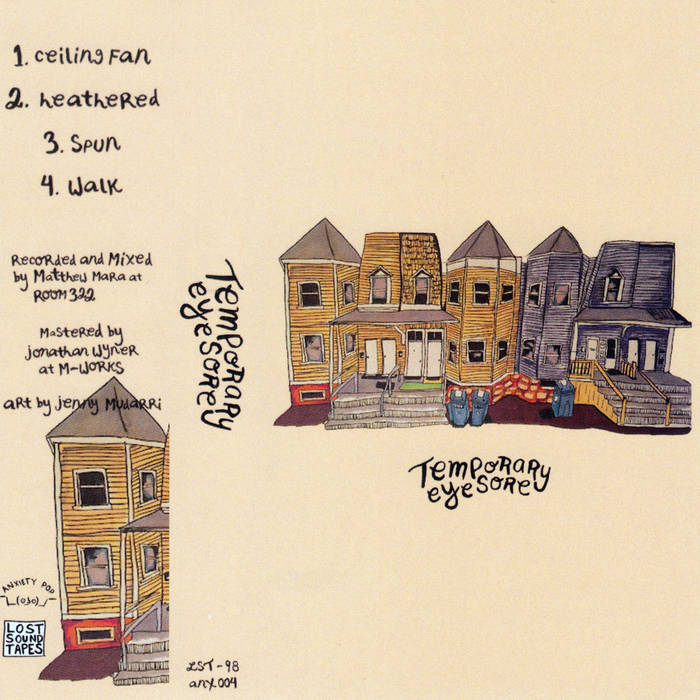 1. Ceiling Fan
2. heathered
3. Spun
4. Walk
Recorded and Mixed
by Matthew Mara at
Room 322
Mastered by
Jonathan Wyner
at M-Works
art by Jenny Mudarri
ANXIETY POP
LOST
SOUND
TAPES
Temporary
eyesore
LST-98
anx004
Temporary
eyesore